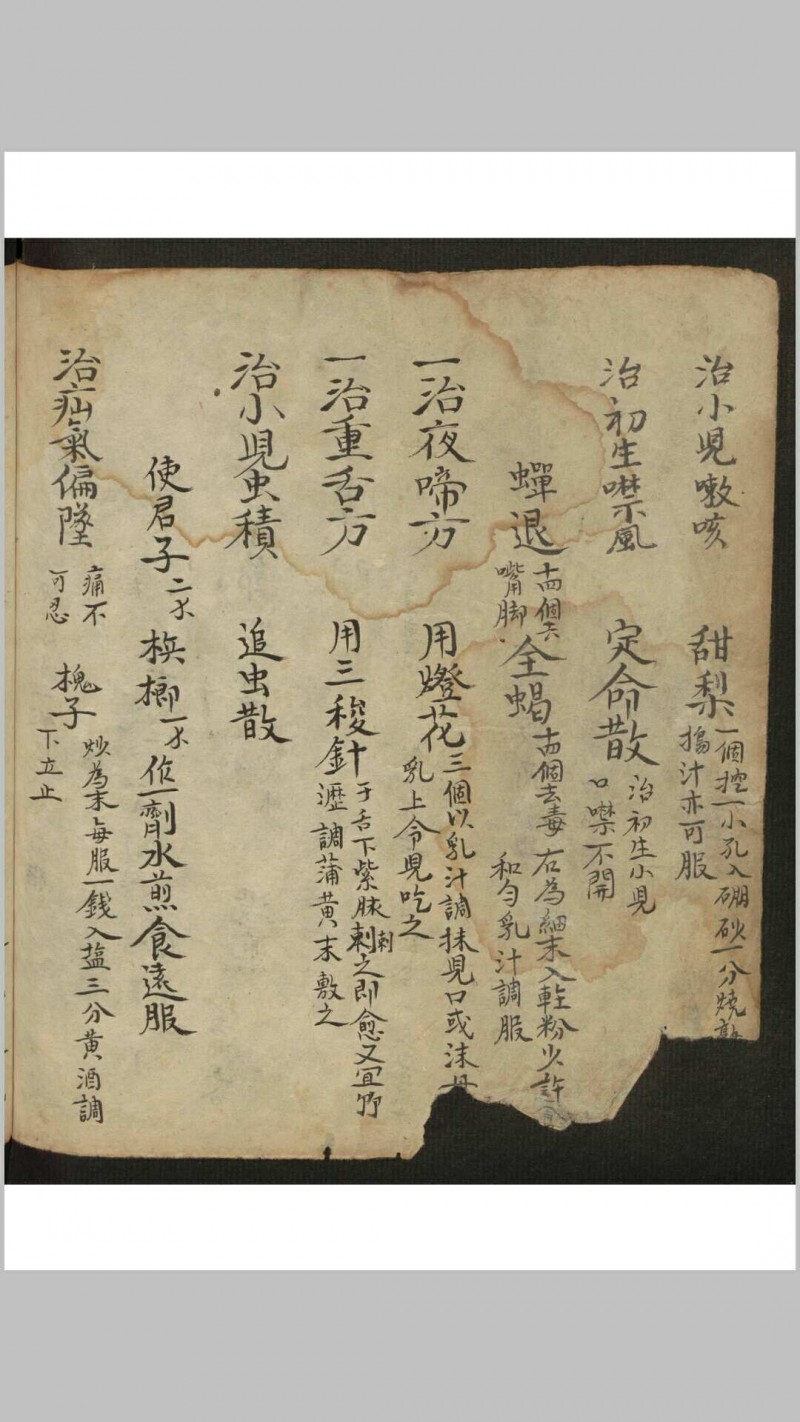 治小児嗽咳 甜梨 一個挖一小孔入硼砂一分燒
搗汁亦可服
治初生噤風 定命散 治初生小児
口噤不開
蟬退 十四個去
嘴脚 全蝎 十四個去毒 右為細末入輕粉少許
和匀乳汁調服
一治夜啼方 用燈花 三個以乳汁調抹児口或沫母
乳上令児吃之
一治重舌方 用三稜針 于舌下紫脉刺之即愈又宜竹
瀝調蒲黄末敷之
治小児虫積 追虫散
使君子 二个 梹榔 一个 作一劑水煎食遠服
治疝氣偏墜 痛不
可忍 槐子 炒為末每服一錢入塩三分黄酒調
下立止